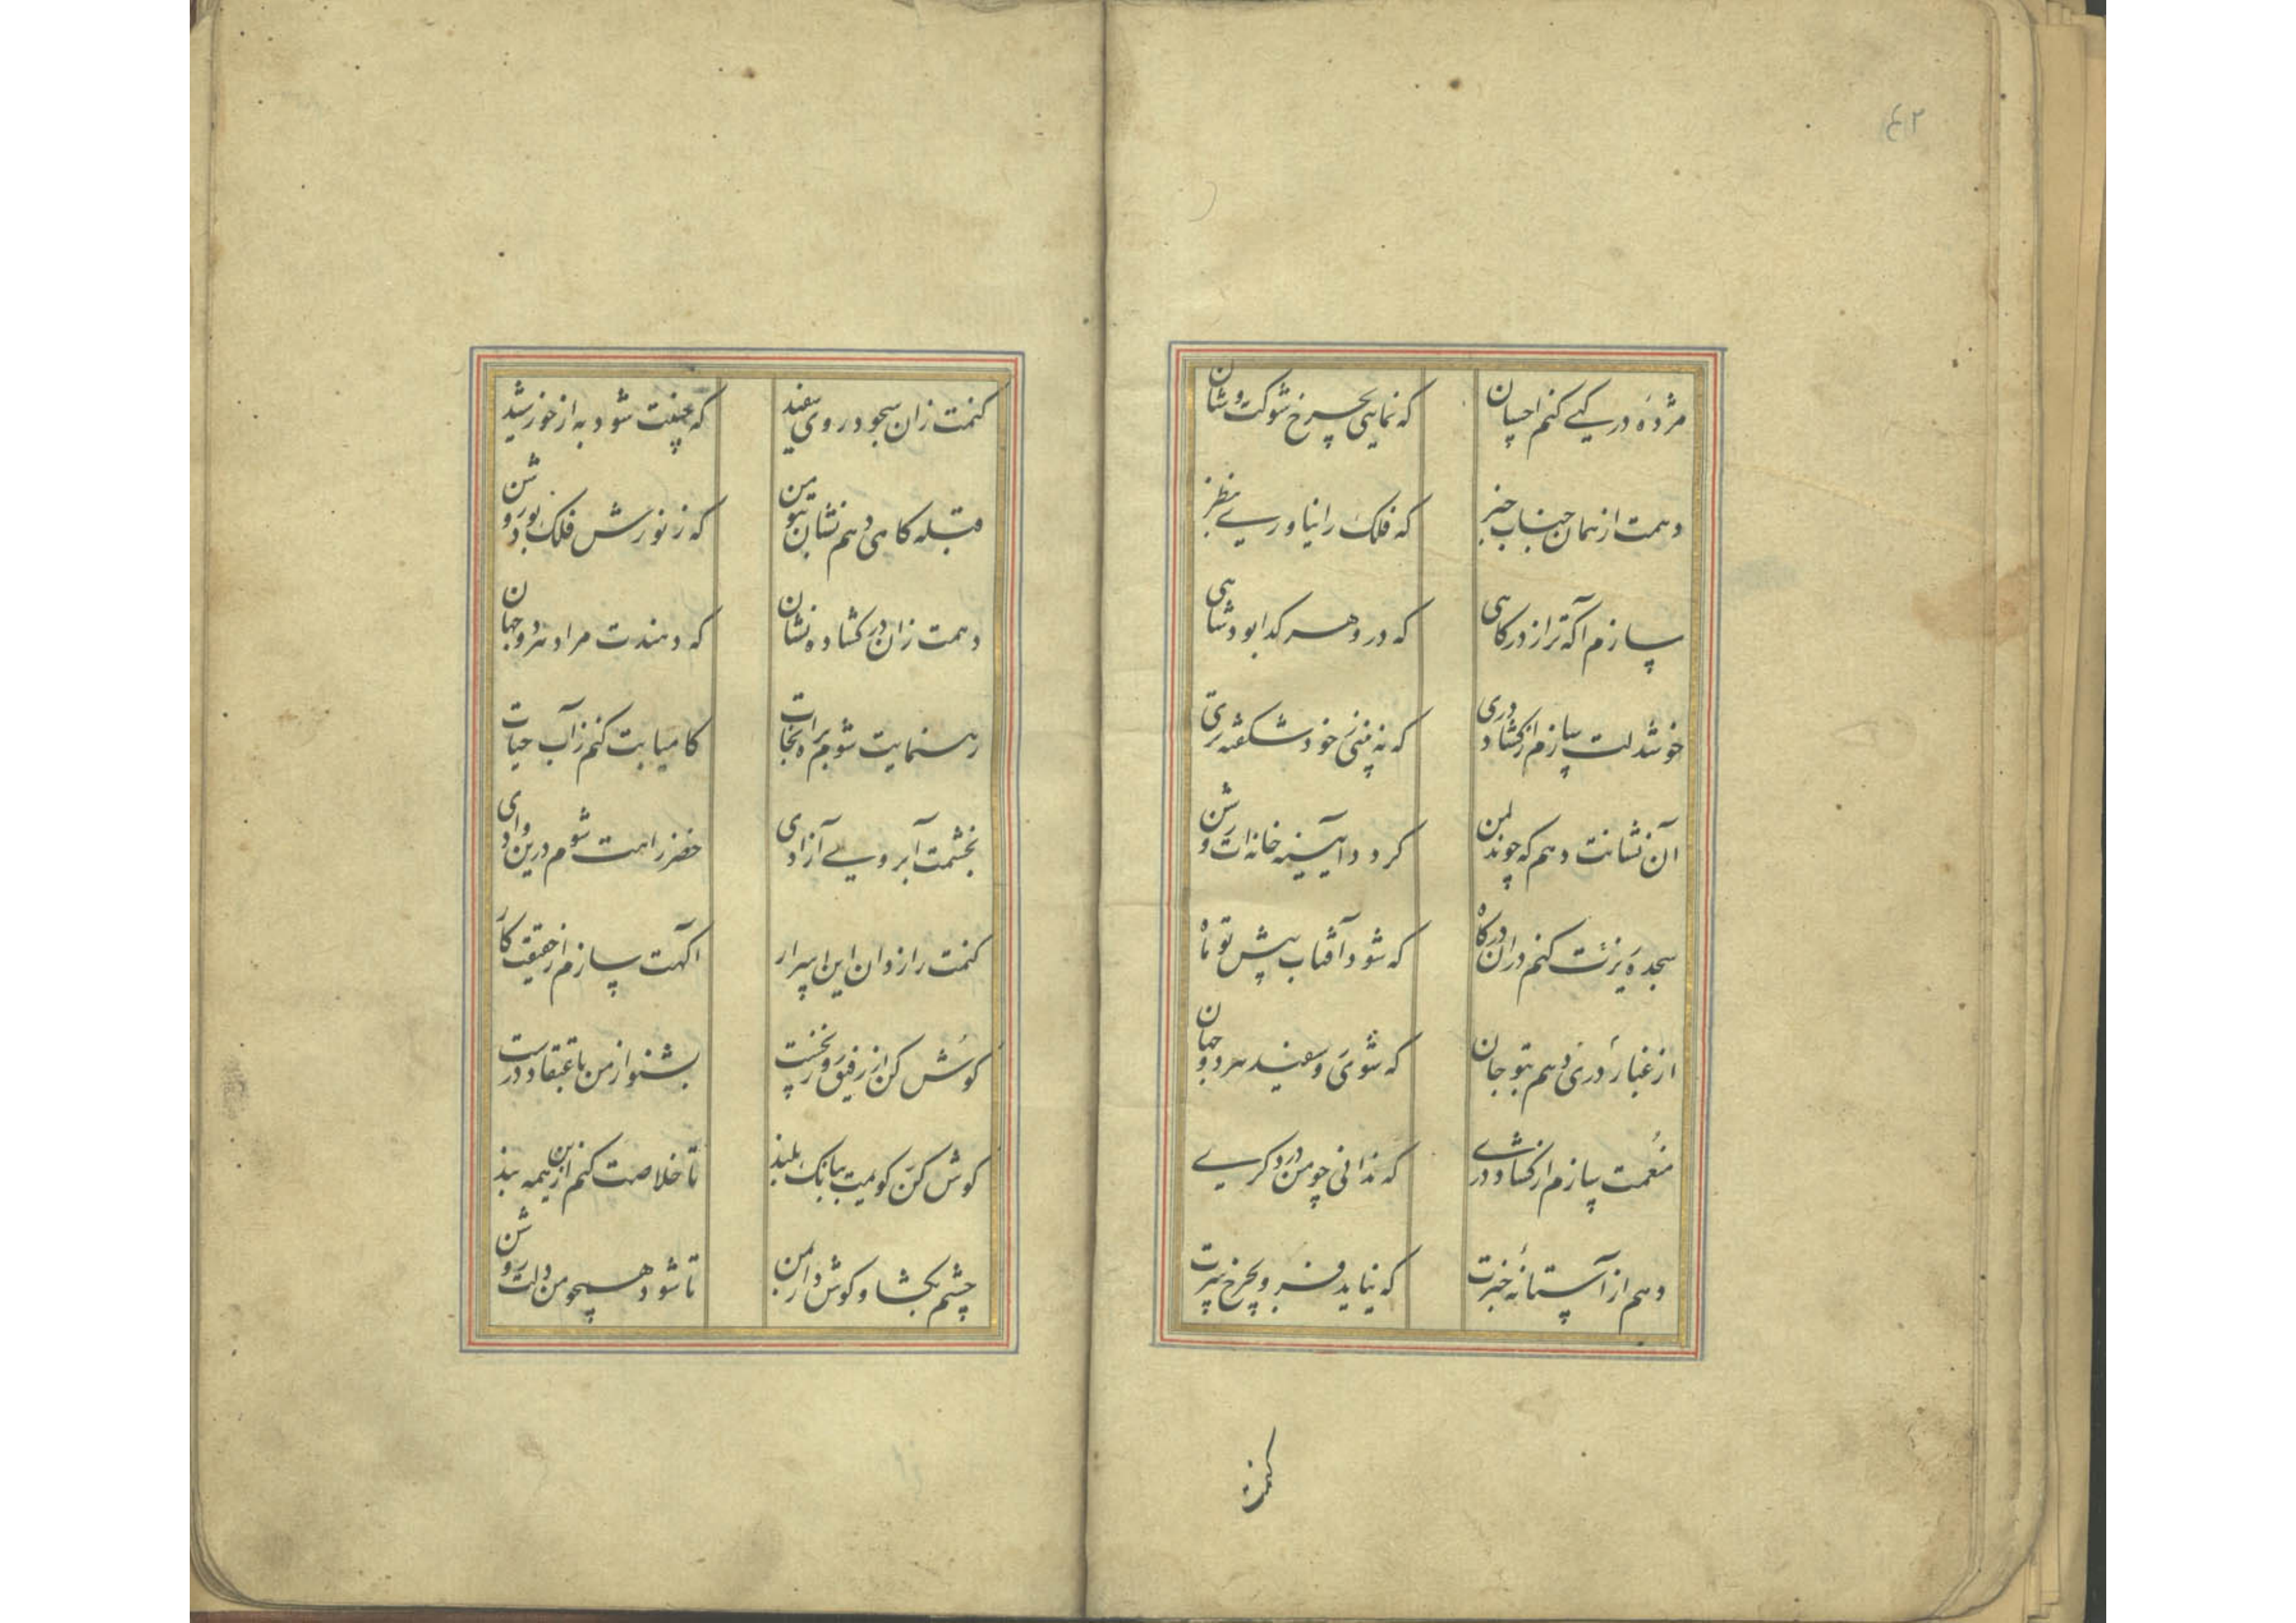 ٤٢
مژدهٔ در کهی کنم احسان که نمایی بچرخ شوکت و شان
دهمت از همان جناب خبر که فلک را نیاوری بنظر
سازم آگه ترا ز درکاهی که در و هر کدا بود شاهی
خوشدلت سازم از کشاد دری که نه بینی ز خود شکفته تری
آن نشانت دهم که چون دل من کردد آیینه خانه ات روشن
سجده ریزت کنم در آن درکاه که شود آفتاب پیش تو ماه
از غبار دری دهم بتو جان که شوی رو سفید هر دو جهان
منعمت سازم از کشاد دری که ندانی چو من در دکری
دهم از آستانهٔ خبرت که نیاید فرو بچرخ سرت
کنمت
کنمت زان سجود روی سفید که جبینت شود به از خورشید
قبله کاهی دهم نشان بتو من که ز نورش فلک بود روشن
دهمت زان در کشاده نشان که دهندت مراد هر دو جهان
رهنمایت شوم براه نجات کامیابت کنم ز آب حیات
بخشمت آبروی آزادی خضر راهت شوم درین وادی
کنمت رازدان این اسرار آکهت سازم از حقیقت کار
کوش کن از رفیق روز نخست بشنو از من باعتقاد درست
کوش کن کویمت ببانک بلند تا خلاصت کنم ازین همه بند
چشم بکشا و کوش دار بمن تا شود همچو من دلت روشن